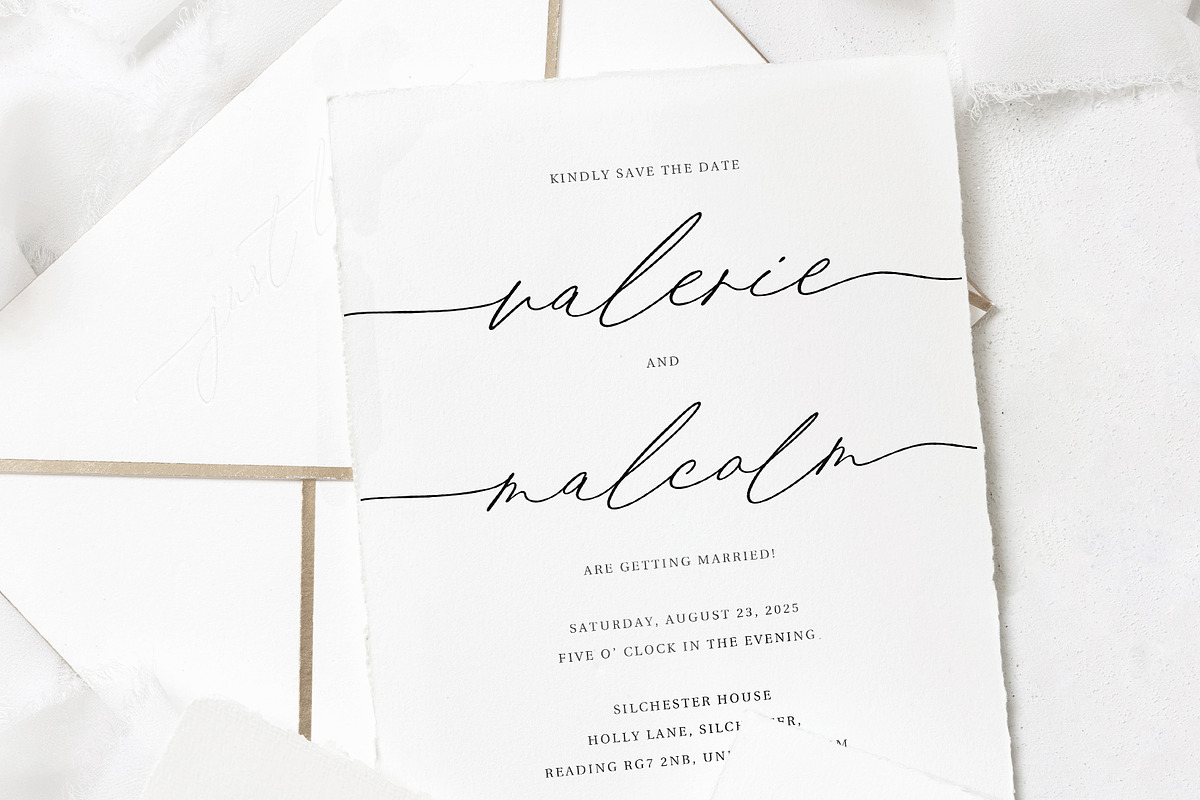 just
KINDLY SAVE THE DATE
valerie
AND
malcolm
ARE GETTING MARRIED!
SATURDAY, AUGUST 23, 2025
FIVE O' CLOCK IN THE EVENING.
SILCHESTER HOUSE
HOLLY LANE,
READING RG7 2NB,